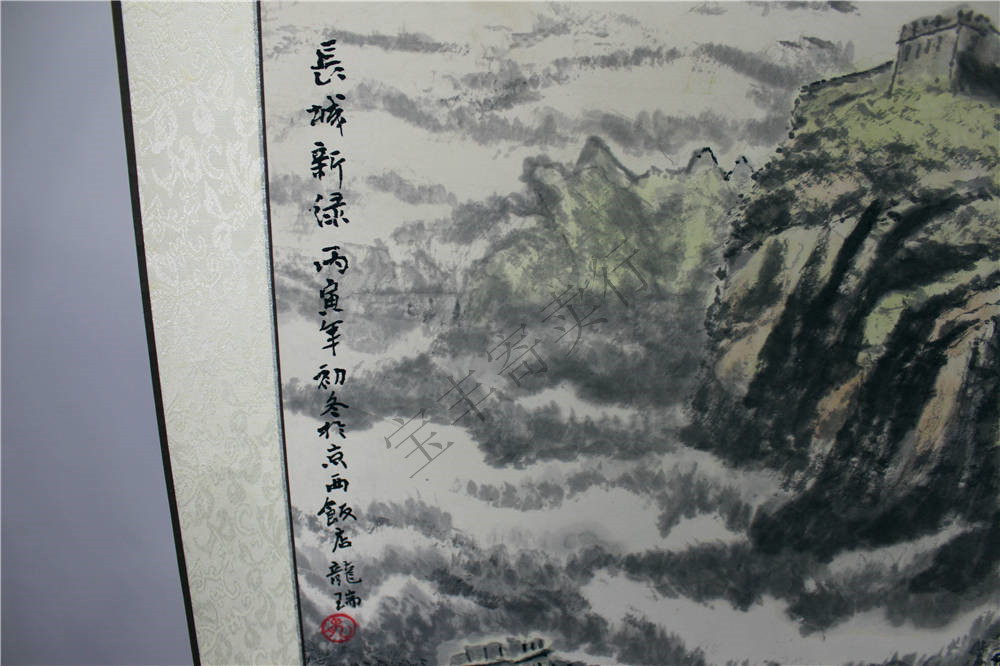 長城新渌丙寅年初冬於京西飯店龍瑞
宝丰寄卖行